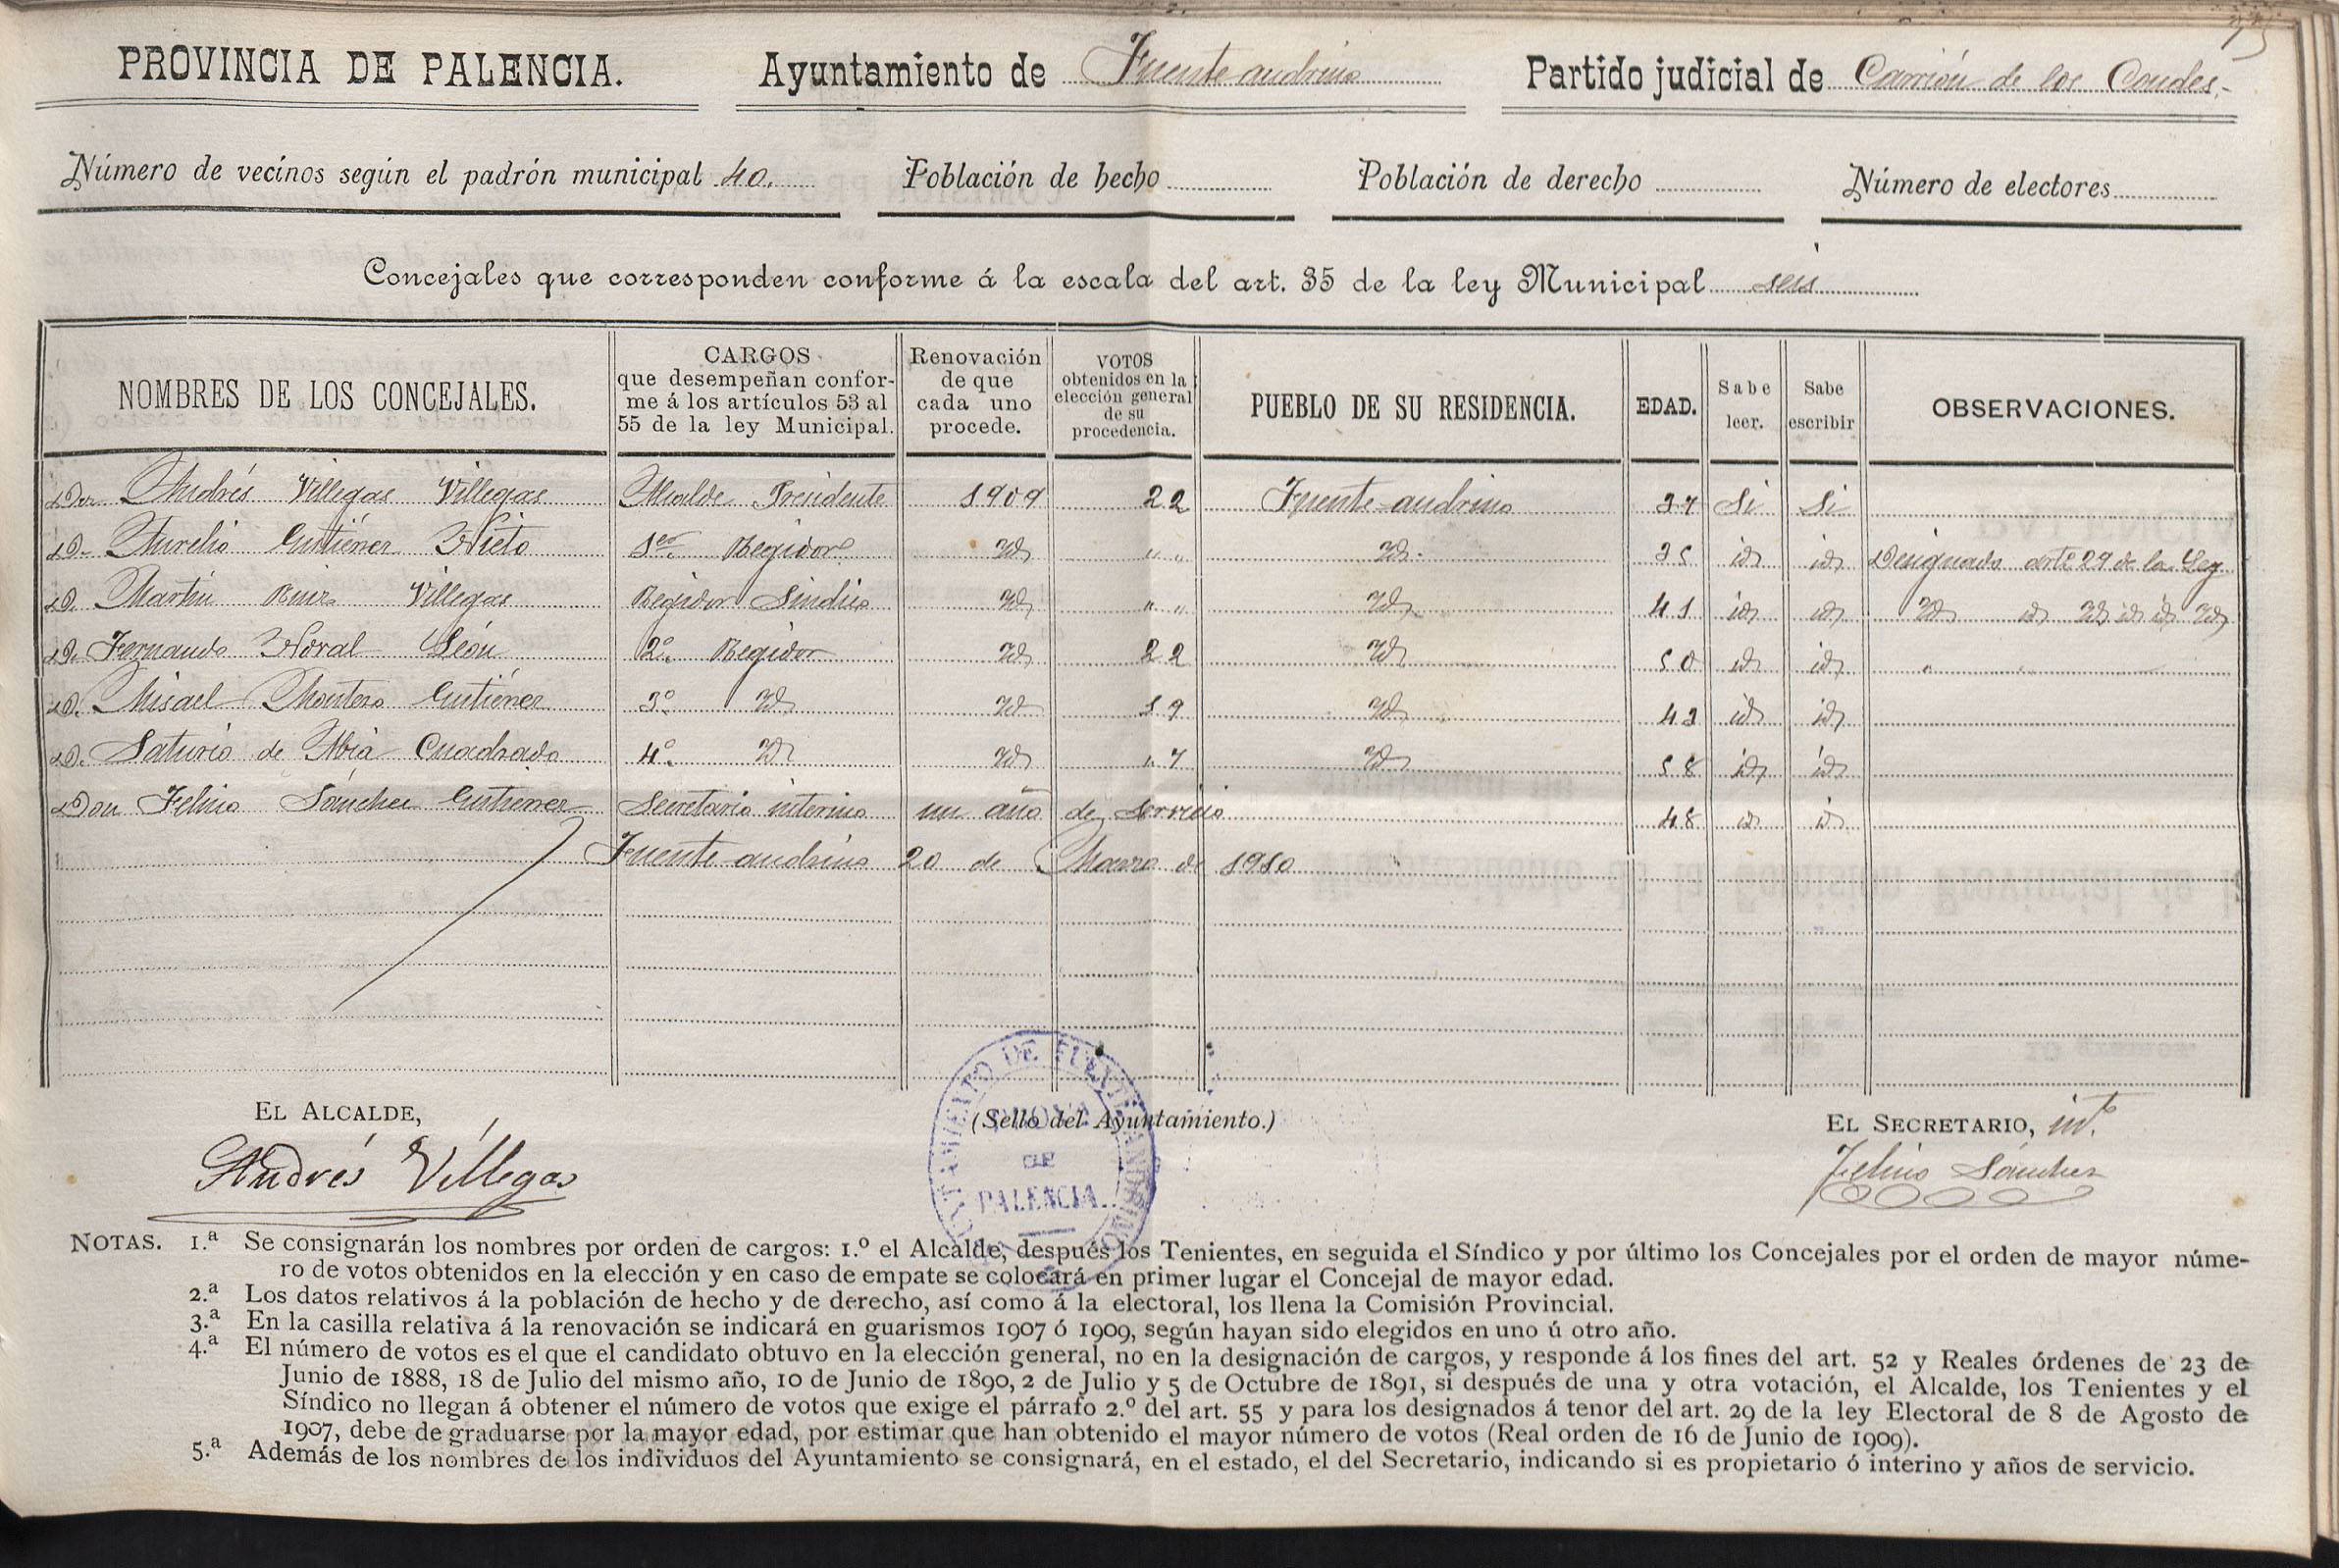 75
PROVINCIA DE PALENCIA. Ayuntamiento de Fuente-andrino Partido judicial de Carrión de los Condes.-
Número de vecinos según el padrón municipal 40. Población de hecho Población de derecho Número de electores
Concejales que corresponden conforme á la escala del art. 35 de la ley Municipal seis
NOMBRES DE LOS CONCEJALES. CARGOS que desempeñan confor- me á los artículos 53 al 55 de la ley Municipal. Renovación de que cada uno procede. VOTOS obtenidos en la elección general de su procedencia. PUEBLO DE SU RESIDENCIA. EDAD. Sabe leer. Sabe escribir OBSERVACIONES.
Don Andrés Villegas Villegas Alcalde Presidente 1909 22 Fuente-andrino 37 Si Si
D. Aurelio Gutiérrez Nieto 1er Regidor Id " " Id. 35 id id Designado arte 29 de la Ley
D. Martín Ruiz Villegas Regidor Sindico Id " " Id 41 id id Id id Id id id Id
D. Fernando Noral León 2º Regidor Id 22 Id 50 id id " "
D. Misael Montero Gutiérrez 3º Id Id 19 Id 43 id id
D. Saturio de Abia Cuadrado 4º Id Id " 7 Id 58 id id
Don Felino Sánchez Gutiérrez Secretario interino un año de servicio 48 id id
Fuente-andrino 20 de Marzo de 1910
EL ALCALDE, (Sello del Ayuntamiento.) EL SECRETARIO, intº
Andrés Villegas Felino Sánchez
AYUNTAMIENTO DE FUENTE-ANDRINO
DE
PALENCIA
NOTAS. 1.ª Se consignarán los nombres por orden de cargos: 1.º el Alcalde, después los Tenientes, en seguida el Síndico y por último los Concejales por el orden de mayor núme-
ro de votos obtenidos en la elección y en caso de empate se colocará en primer lugar el Concejal de mayor edad.
2.ª Los datos relativos á la población de hecho y de derecho, así como á la electoral, los llena la Comisión Provincial.
3.ª En la casilla relativa á la renovación se indicará en guarismos 1907 ó 1909, según hayan sido elegidos en uno ú otro año.
4.ª El número de votos es el que el candidato obtuvo en la elección general, no en la designación de cargos, y responde á los fines del art. 52 y Reales órdenes de 23 de
Junio de 1888, 18 de Julio del mismo año, 10 de Junio de 1890, 2 de Julio y 5 de Octubre de 1891, si después de una y otra votación, el Alcalde, los Tenientes y el
Síndico no llegan á obtener el número de votos que exige el párrafo 2.º del art. 55 y para los designados á tenor del art. 29 de la ley Electoral de 8 de Agosto de
1907, debe de graduarse por la mayor edad, por estimar que han obtenido el mayor número de votos (Real orden de 16 de Junio de 1909).
5.ª Además de los nombres de los individuos del Ayuntamiento se consignará, en el estado, el del Secretario, indicando si es propietario ó interino y años de servicio.